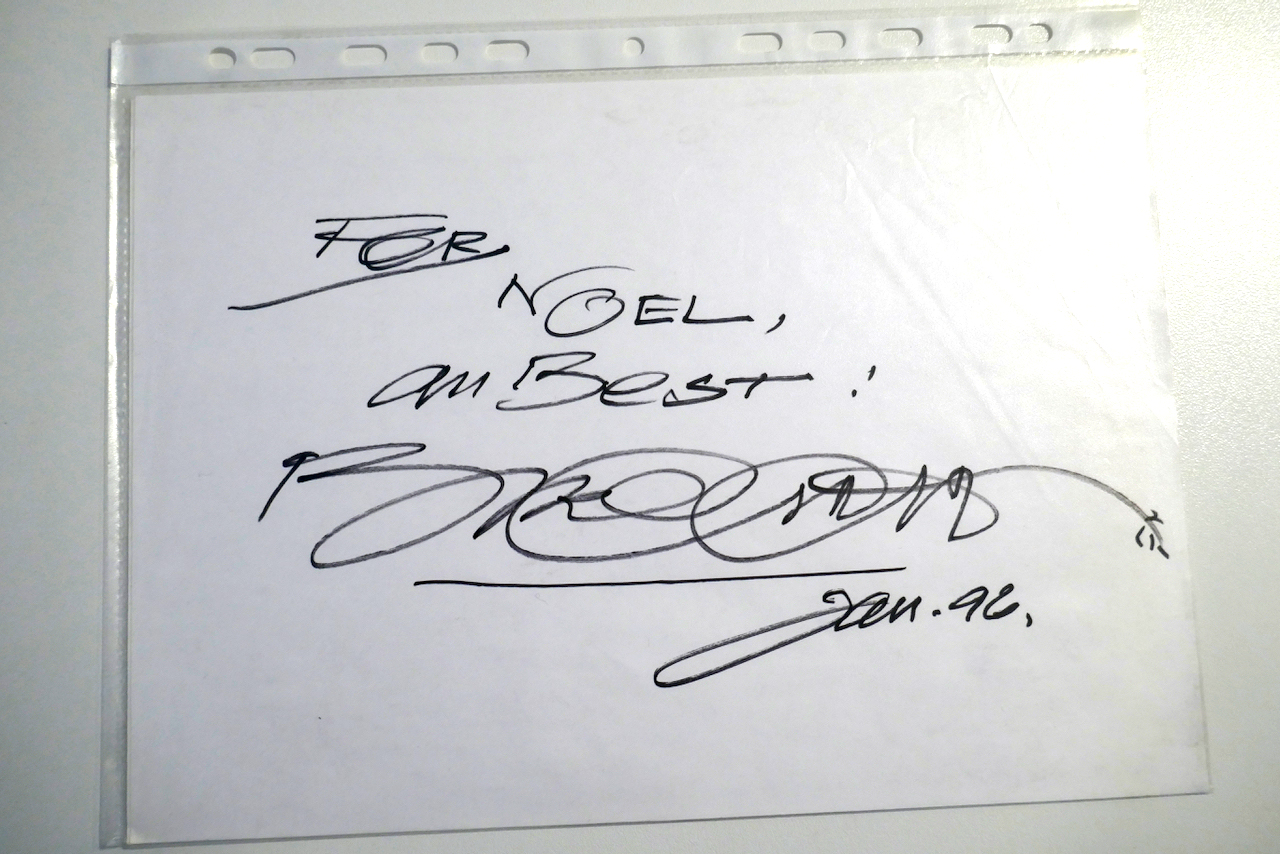 FOR
NOEL,
all Best!
Jan. 96.